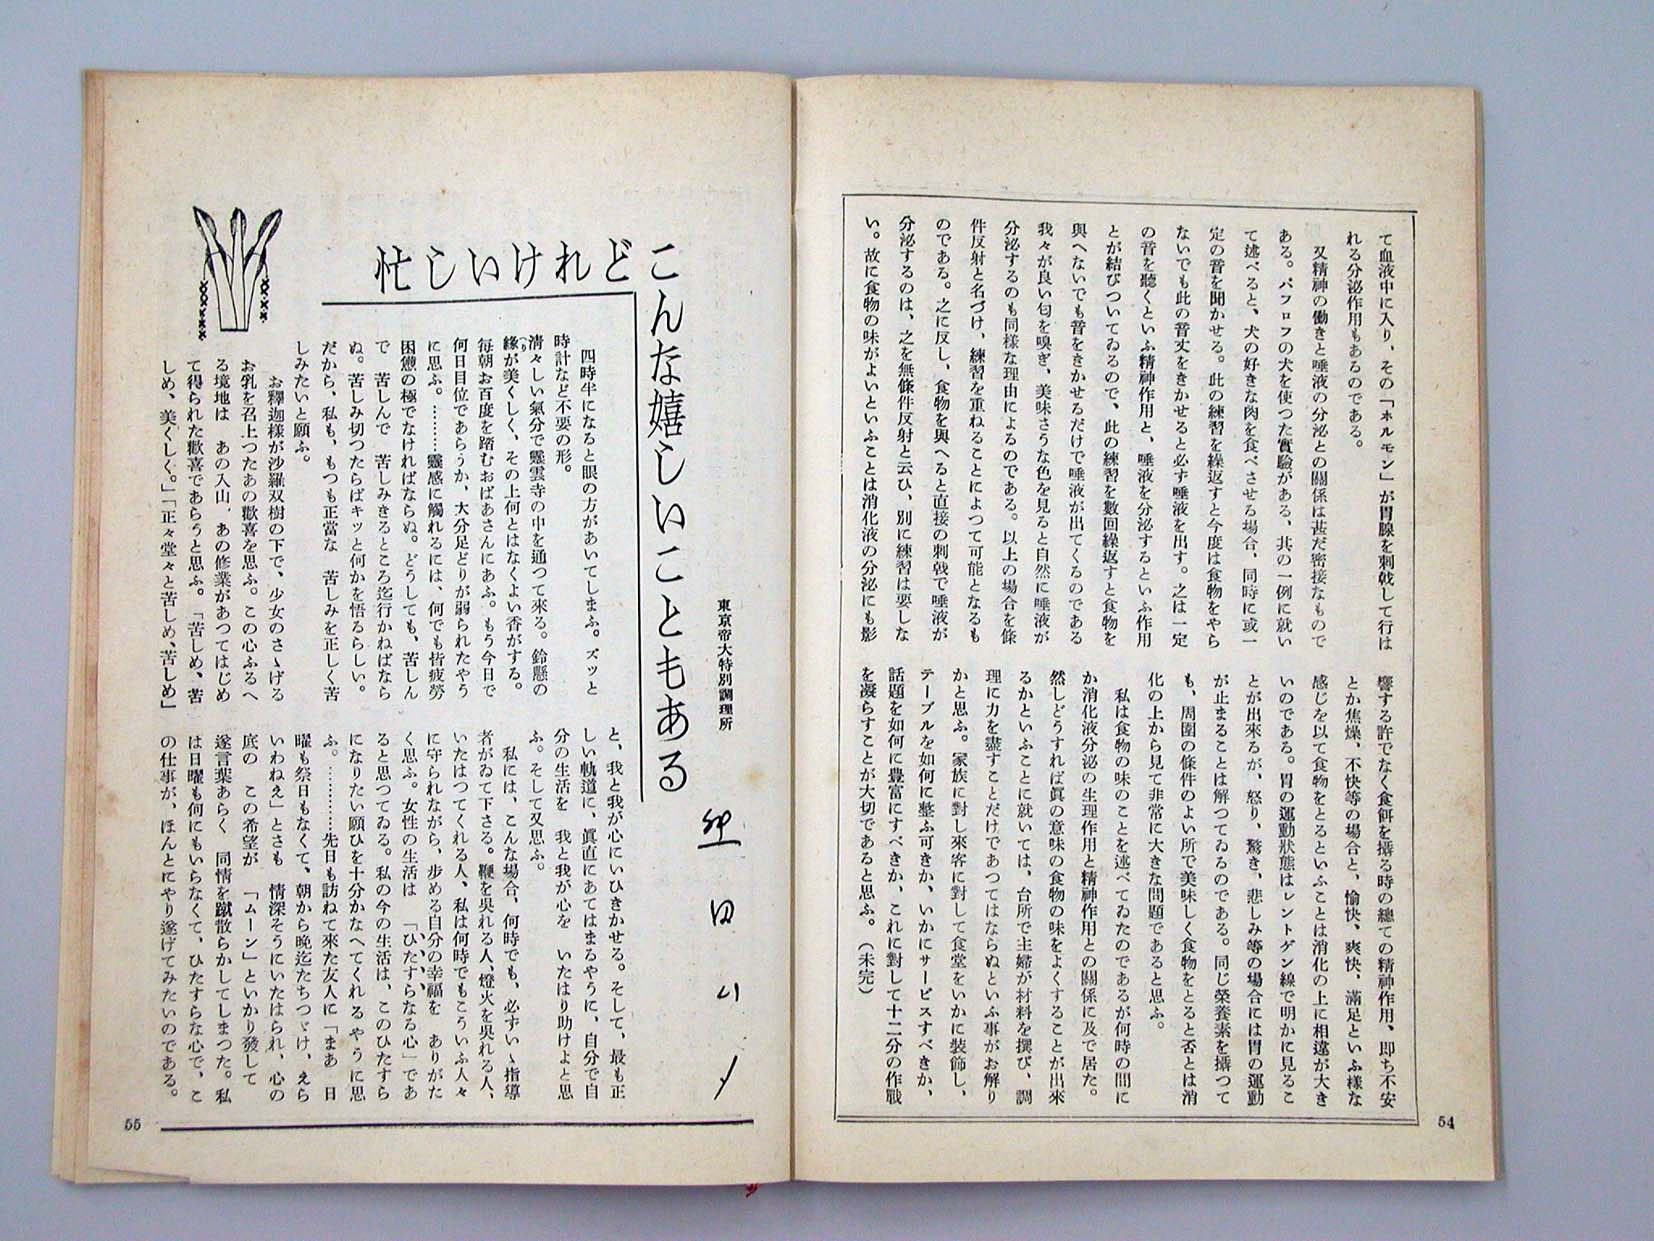 て血液中に入り、その「ホルモン」が胃腺を刺戟して行は
れる分泌作用もあるのである。
又精神の働きと唾液の分泌との關係は甚だ密接なもので
ある。パフロフの犬を使つた實驗がある、其の一例に就い
て述べると、犬の好きな肉を食べさせる場合、同時に或一
定の音を聞かせる。此の練習を繰返すと今度は食物をやら
ないでも此の音丈をきかせると必ず唾液を出す。之は一定
の音を聽くといふ精神作用と、唾液を分泌するといふ作用
とが結びついてゐるので、此の練習を數回繰返すと食物を
與へないでも音をきかせるだけで唾液が出てくるのである
我々が良い匂を嗅ぎ、美味さうな色を見ると自然に唾液が
分泌するのも同様な理由によるのである。以上の場合を條
件反射と名づけ、練習を重ねることによつて可能となるも
のである。之に反し、食物を與へると直接の刺戟で唾液が
分泌するのは、之を無條件反射と云ひ、別に練習は要しな
い。故に食物の味がよいといふことは消化液の分泌にも影
響する許でなく食餌を攝る時の總ての精神作用、即ち不安
とか焦燥、不快等の場合と、愉快、爽快、滿足といふ樣な
感じを以て食物をとるといふことは消化の上に相違が大き
いのである。胃の運動狀態はレントゲン線で明かに見るこ
とが出來るが、怒り、驚き、悲しみ等の場合には胃の運動
が止まることは解つてゐるのである。同じ榮養素を攝つて
も、周圍の條件のよい所で美味しく食物をとると否とは消
化の上から見て非常に大きな問題であると思ふ。
私は食物の味のことを述べてゐたのであるが何時の間に
か消化液分泌の生理作用と精神作用との關係に及で居た。
然しどうすれば眞の意味の食物の味をよくすることが出來
るかといふことに就いては、台所で主婦が材料を撰び、調
理に力を盡すことだけであつてはならぬといふ事がお解り
かと思ふ。家族に對し來客に對して食堂をいかに裝飾し、
テーブルを如何に整ふ可きか、いかにサービスすべきか、
話題を如何に豊富にすべきか、これに對して十二分の作戰
を凝らすことが大切であると思ふ。（未完）
54
こんな嬉しいこともある
忙しいけれど
東京帝大特別調理所
四時半になると眼の方があいてしまふ。ズッと
時計など不要の形。
淸々しい氣分で靈雲寺の中を通つて來る。鈴懸の
緣が美くしく、その上何とはなくよい香がする。
毎朝お百度を踏むおばあさんにあふ。もう今日で
何日目位であらうか、大分足どりが弱られたやう
に思ふ。………靈感に觸れるには、何でも皆疲勞
困憊の極でなければならぬ。どうしても、苦しん
で 苦しんで 苦しみきるところ迄行かねばなら
ぬ。苦しみ切つたらばキッと何かを悟るらしい。
だから、私も、もつも正當な 苦しみを正しく苦
しみたいと願ふ。
お釋迦樣が沙羅双樹の下で、少女のさゝげる
お乳を召上つたあの歡喜を思ふ。この心ふるへ
る境地は あの入山、あの修業があつてはじめ
て得られた歡喜であらうと思ふ。「苦しめ、苦
しめ、美くしく。」「正々堂々と苦しめ、苦しめ」
と、我と我が心にいひきかせる。そして、最も正
しい軌道に、眞直にあてはまるやうに、自分で自
分の生活を 我と我が心を いたはり助けよと思
ふ。そして又思ふ。
私には、こんな場合、何時でも、必ずいゝ指導
者がゐて下さる。鞭を吳れる人、燈火を吳れる人、
いたはつてくれる人、私は何時でもこういふ人々
に守られながら、步める自分の幸福を ありがた
く思ふ。女性の生活は 「ひたすらなる心」であ
ると思つてゐる。私の今の生活は、このひたすら
になりたい願ひを十分かなへてくれるやうに思
ふ。…………先日も訪ねて來た友人に「まあ 日
曜も祭日もなくて、朝から晩迄たちつゞけ、えら
いわねえ」とさも 情深そうにいたはられ、心の
底の この希望が 「ムーン」といかり發して
遂言葉あらく 同情を蹴散らかしてしまつた。私
は日曜も何にもいらなくて、ひたすらな心で、こ
の仕事が、ほんとにやり遂げてみたいのである。
55